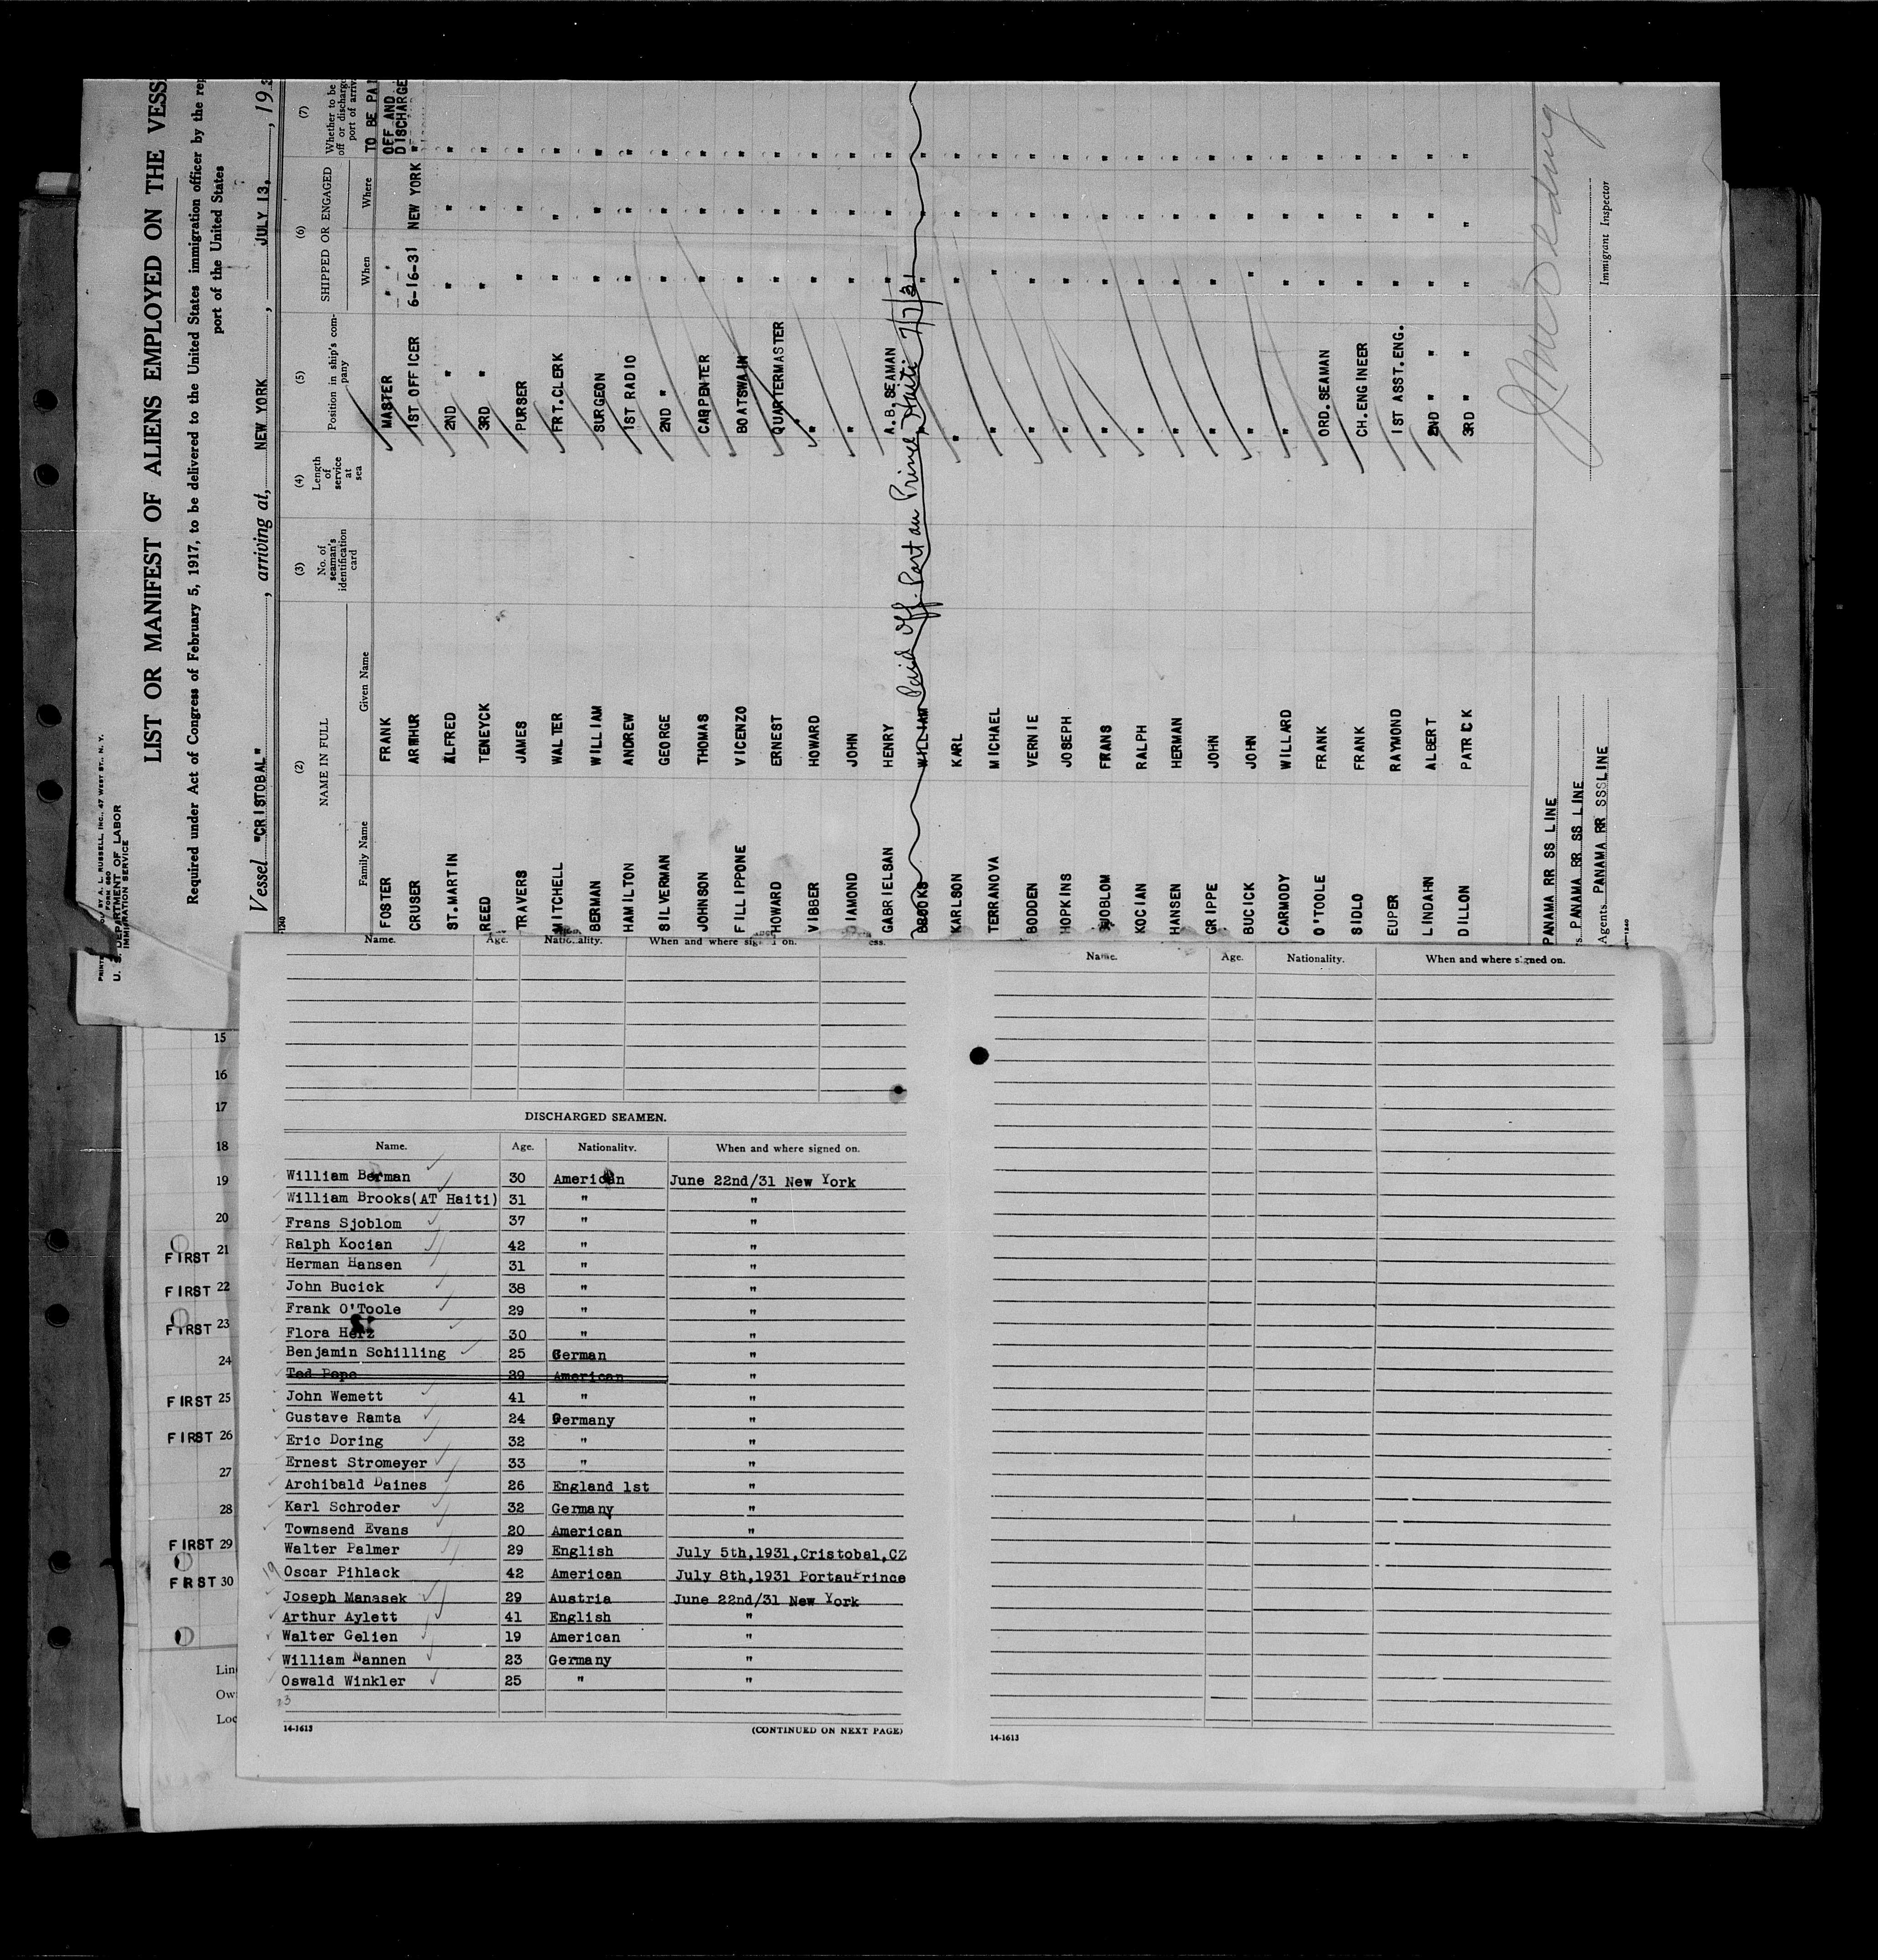 PRINTED
BY A. L. RUSSELL, INC., 47 WEST ST., N. Y.
FORM 680
U. S. DEPARTMENT OF LABOR
IMMIGRATION SERVICE
LIST OR MANIFEST OF ALIENS EMPLOYED ON THE VESS
Required under Act of Congress of February 5, 1917, to be delivered to the United States immigration officer by the rep
port of the United States
Vessel "CRISTOBAL", arriving at, NEW YORK, JULY 13, 193
(2) NAME IN FULL (3) No. of seaman's identification card (4) Length of service at sea (5) Position in ship's company (6) SHIPPED OR ENGAGED (7) Whether to be off or discharge port of arriv
Family Name Given Name When Where
TO BE PAI
FOSTER FRANK MASTER " " OFF AND DISCHARGE
CRUSER ARTHUR 1ST OFFICER 6-16-31 NEW YORK "
ST.MARTIN ALFRED 2ND " " " "
REED TENEYCK 3RD " " " "
TRAVERS JAMES PURSER " " "
MITCHELL WALTER FRT.CLERK " " "
BERMAN WILLIAM SURGEON " " "
HAMILTON ANDREW 1ST RADIO " " "
SILVERMAN GEORGE 2ND " " " "
JOHNSON THOMAS CARPENTER " " "
FILLIPPONE VICENZO BOATSWAIN " " "
HOWARD ERNEST QUARTERMASTER " " "
VIBBER HOWARD " " " "
DIAMOND JOHN " " " "
GABRIELSAN HENRY A.B.SEAMAN " " "
BROOKS WILLIAM Paid off Port au Prince Haiti 7/7/31 " " "
KARLSON KARL " " " "
TERRANOVA MICHAEL " " " "
BODDEN VERNIE " " " "
HOPKINS JOSEPH " " " "
SJOBLOM FRANS " " " "
KOCIAN RALPH " " " "
HANSEN HERMAN " " " "
GRIPPE JOHN " " " "
BUCICK JOHN " " " "
CARMODY WILLARD " " " "
O'TOOLE FRANK ORD.SEAMAN " " "
SIDLO FRANK CH.ENGINEER " " "
EUPER RAYMOND 1ST ASST.ENG. " " "
LINDAHN ALBERT 2ND " " " " "
DILLON PATRICK 3RD " " " " "
PANAMA RR SS LINE
s PANAMA RR SS LINE
Agents PANAMA RR SSSLINE
Immigrant Inspector
Name. Age. Nationality. When and where signed on.
DISCHARGED SEAMEN.
Name. Age. Nationality. When and where signed on.
William Berman 30 American June 22nd/31 New York
William Brooks(AT Haiti) 31 " "
Frans Sjoblom 37 " "
Ralph Kocian 42 " "
Herman Hansen 31 " "
John Bucick 38 " "
Frank O'Toole 29 " "
Flora Herz 30 " "
Benjamin Schilling 25 German "
Ted Pape 29 American "
John Wemett 41 " "
Gustave Ramta 24 Germany "
Eric Doring 32 " "
Ernest Stromeyer 33 " "
Archibald Daines 26 England 1st "
Karl Schroder 32 Germany "
Townsend Evans 20 American "
Walter Palmer 29 English July 5th,1931,Cristobal,CZ
19 Oscar Pihlack 42 American July 8th,1931 PortauPrince
Joseph Manasek 29 Austria June 22nd/31 New York
Arthur Aylett 41 English "
Walter Gelien 19 American "
William Nannen 23 Germany "
Oswald Winkler 25 " "
23
14-1613 (CONTINUED ON NEXT PAGE)
Name. Age. Nationality. When and where signed on.
14-1613
15
16
17
18
19
20
FIRST 21
FIRST 22
FIRST 23
24
FIRST 25
FIRST 26
27
28
FIRST 29
FRST 30
Lin
Ow
Loc